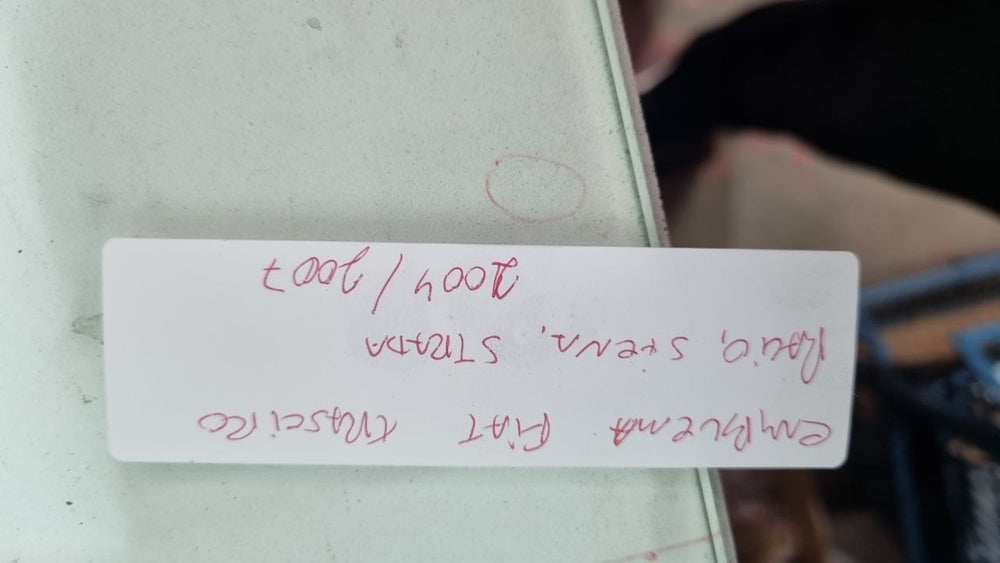 emBLemA FiAT TRASeiRO
PALiO, SieNA, STRADA
2004/2007